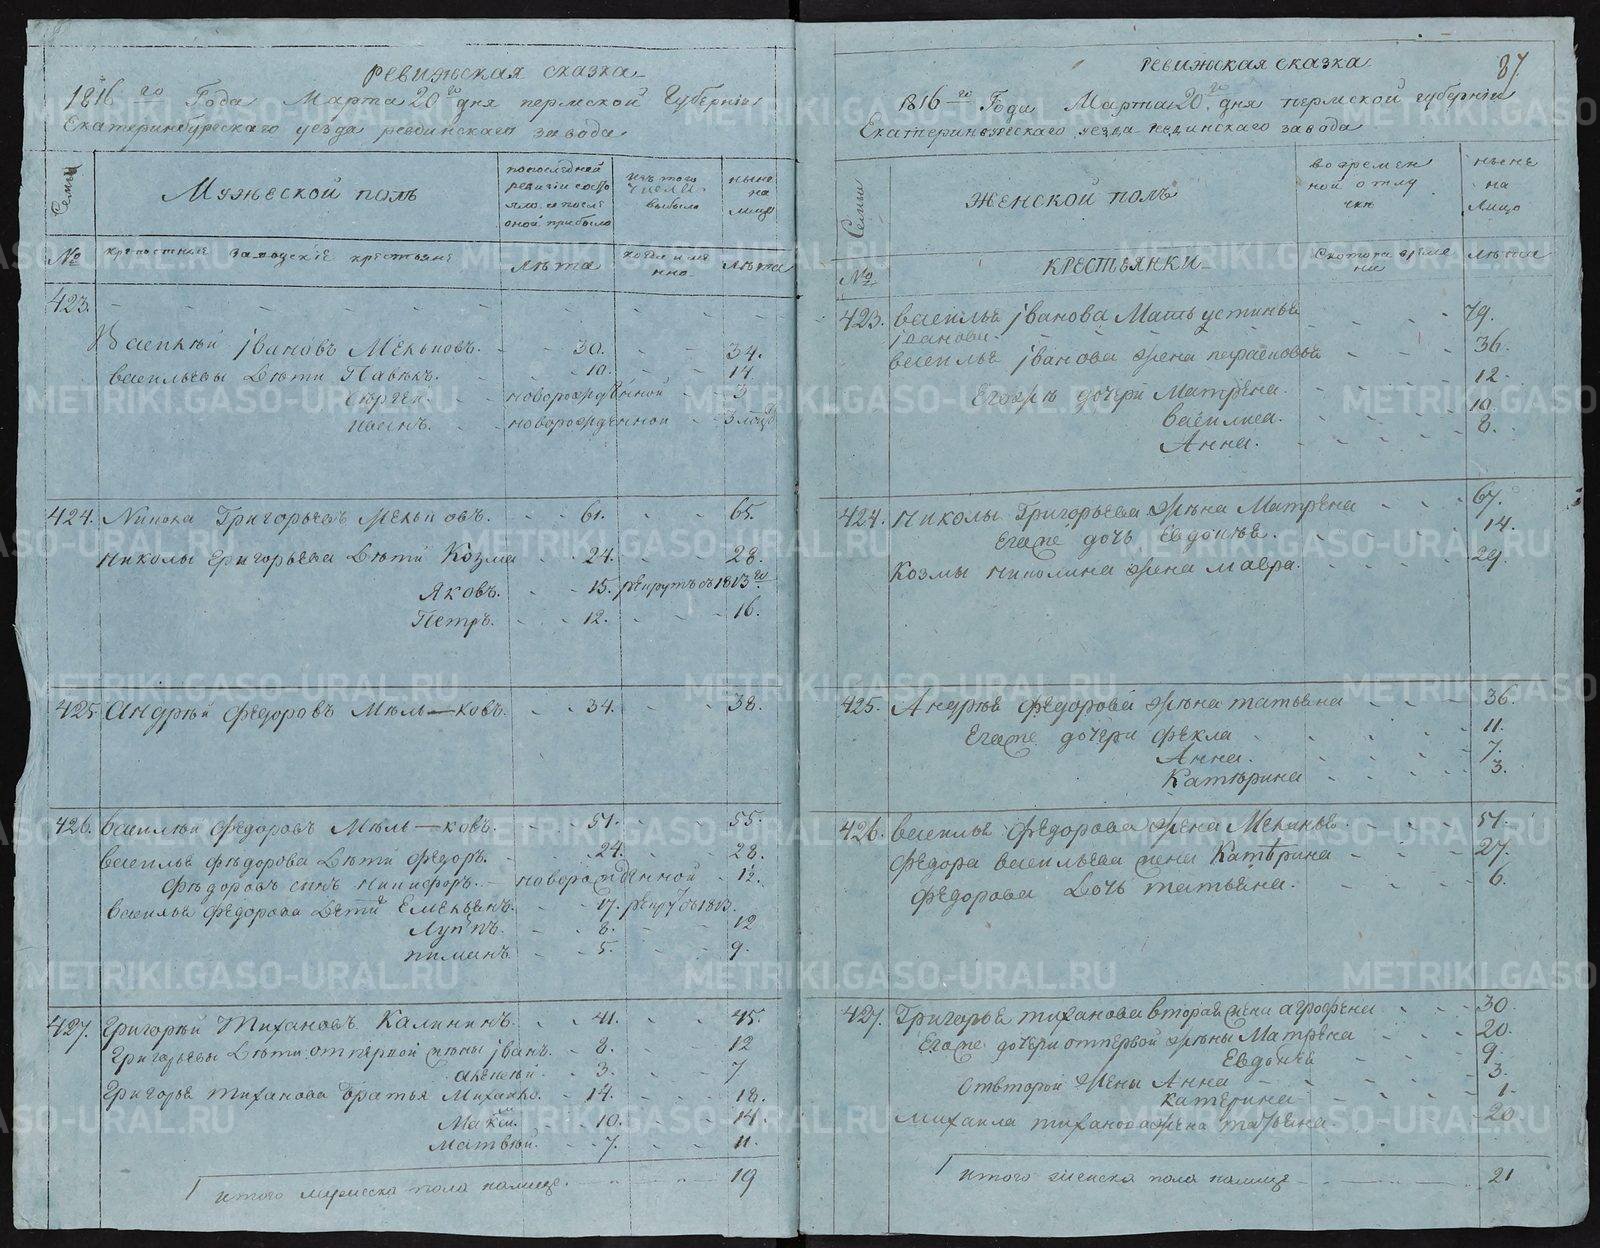 Ревижская сказка
1816 го Года Марта 20 го дня пермской Губернiи
Екатеринбургскаго уезда ревдинскаго завода
Семьи
Мужеской полъ
попоследней ревизiи состояло и после оной прибыло
изъ того числа выбыло
ныне на лицо
№
крепостные заводскiе крестьяне
лѣта
когда имянно
лѣта
423.
Василей Iвановъ Мельковъ. 30. 34.
васильевы дѣти Павелъ. 10. 14
Сергей. новорожденной 3
новорожденной
424. Никола Григорьевъ Мельковъ. 61. 65.
николы григорьева дѣти Козма 24. 28.
Яковъ. 15. рекрутъ съ 1813 го
Петръ. 12. 16.
425 Андрѣй федоровъ Мѣль—ковъ. 34. 38.
426. василѣй федоровъ Мѣль—ковъ. 51. 55.
василье фѣдорова дѣти федоръ. 24. 28.
фѣдоровъ сынъ никифоръ. новорожденной 12.
василье федорова дети Емельянъ. 17. рекрутъ 1813.
Луппъ. 8. 12
пиминъ 5. 9.
427. григорѣй тихановъ Калининъ. 41. 45.
григорьевы дѣти отпервой жены iванъ. 8. 12
алексей. 3. 7
григорье тиханова братья Михайло. 14. 18.
10. 14.
матвѣй. 7. 11.
итого мужеска пола налице. 19
Ревижская сказка
87
1816 го Года Марта 20 го дня пермской губернiи
Екатеринбужскаго уезда ревдинскаго завода
Семьи
Женской полъ
во времянной отлучке
ныне на Лицо
№
Крестьянки
Скотораго времени
лѣта
423. василье iванова Мать устинья 79.
iванова.
василье iванова жена парасковья 36.
Егожъ дочери Матрена. 12
василиса. 10.
Анна. 8.
424. николы Григорьева жѣна Матрѣна 67.
Егоже дочь Евдокѣя. 14.
Козмы николина жена мавра. 29.
425. Андрѣе федоровой жѣна татьяна 36.
Егоже дочери фекла 11.
Анна. 7.
Катѣрина 3.
426. василье федорова жена 51.
федора васильева жена Катѣрина 27.
федорова дочь татьяна. 6.
427. Григорье тиханова вторая жена аграфена 30.
Егоже дочери отпервой жены Матрѣна 20.
Евдокея 9.
отвторой жены Анна 3.
катерина 1.
михаила тиханова жена татьяна 20
итого женска пола налице 21
METRIKI.GASO-URAL.RU